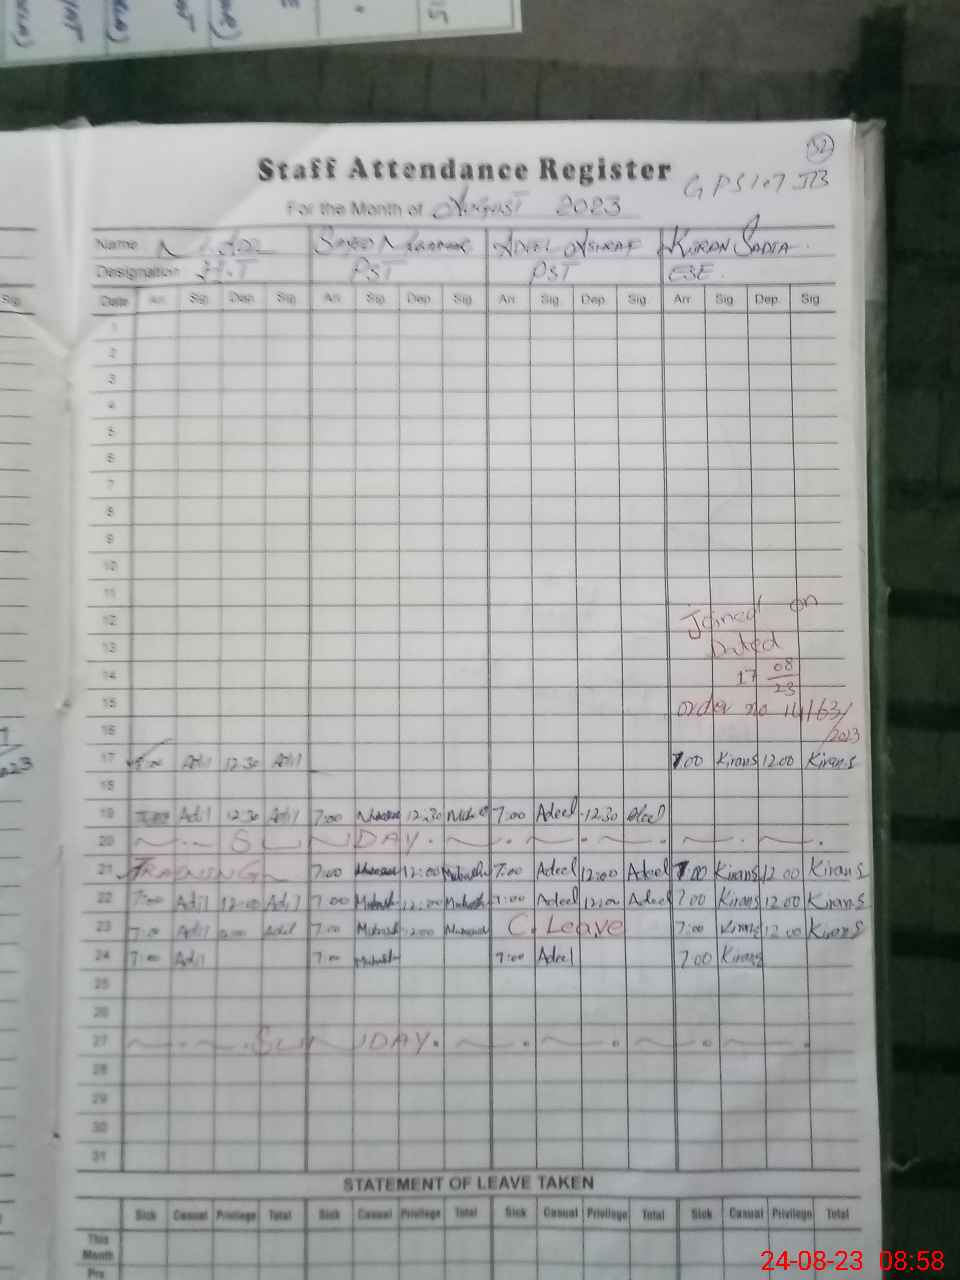 52
Staff Attendance Register
GPS 107 JB
For the Month of August 2023
Name Adeel Ashraf Kiran Sadia
Designation H.T PST PST ESE
Date Arr. Sig. Dep. Sig. Arr. Sig. Dep. Sig. Arr. Sig. Dep. Sig. Arr. Sig. Dep. Sig.
1
2
3
4
5
6
7
8
9
10
11
12 Joined on
13 Dated
14 17 08/23
15 order no
16 2023
17 Adil 12.30 Adil 7.00 Kirans 12.00 Kirans
18
19 Adil 12.30 Adil 7:00 12.30 7:00 Adeel 12.30
20 SUNDAY.
21 TRAINING 7:00 12:00 Mubash 7:00 Adeel 12:00 Adeel 7.00 Kirans 12 00 Kirans
22 7:00 Adil 12:00 Adil 7 00 Mubash 12:00 Mubash 7:00 Adeel 12:00 Adeel 7 00 Kirans 12.00 Kirans
23 7:00 Adil Adil 7:00 Mubash 12:00 C. Leave 7:00 Kirans 12 00 Kirans
24 7:00 Adil 7:00 Mubash 7:00 Adeel 7 00 Kirans
25
26
27 SUNDAY.
28
29
30
31
STATEMENT OF LEAVE TAKEN
Sick Casual Privilege Total Sick Casual Privilege Total Sick Casual Privilege Total Sick Casual Privilege Total
This
Month
Pre
24-08-23 08:58